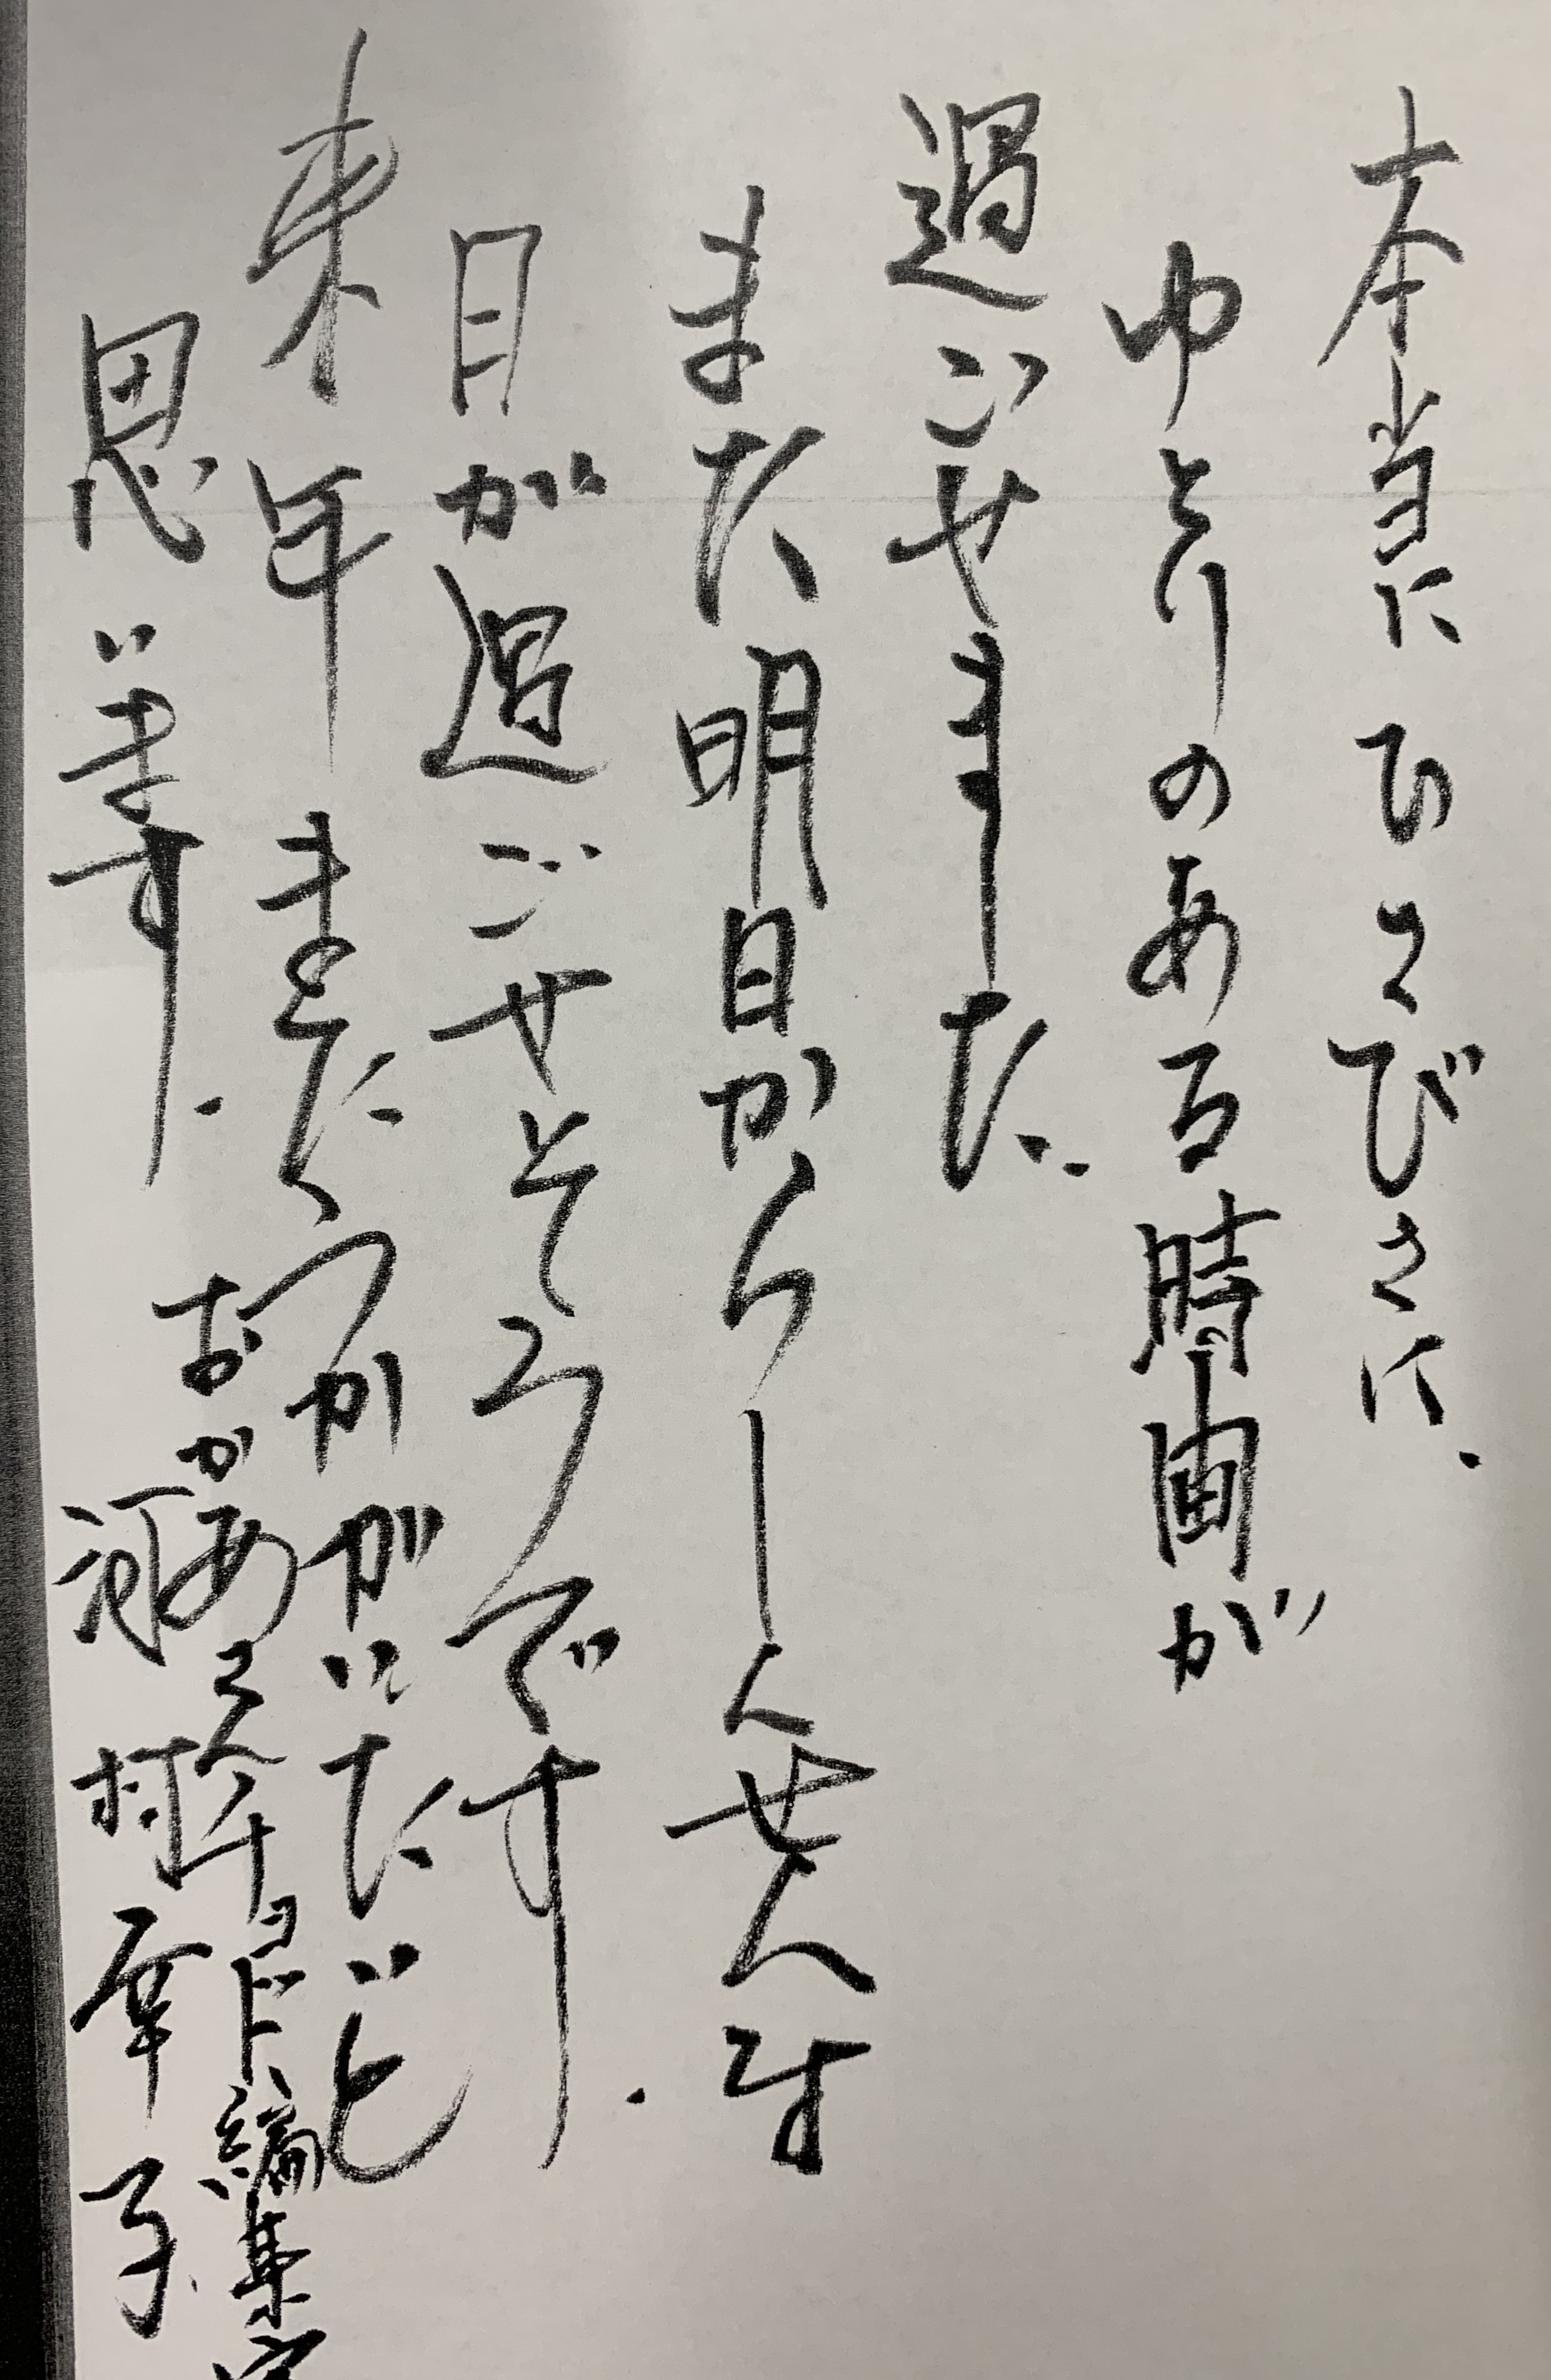 本当にひさびさに.
ゆとりのある時間が
過ごせました.
また明日からしんせんな
日が過ごせそうです.
来年またうかがいたいと
思います.
おかあさんチョイド編集室
河村幸子